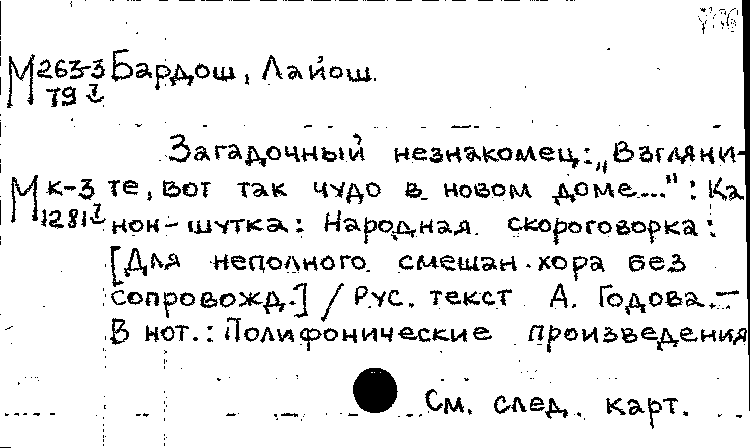 М 263-3 Бардош, Лайош.
79 I
Загадочный незнакомец: „Взгляни-
М к-3 те, вот так чудо в новом доме...": Ка
1281 I нон-шутка: Народная скороговорка:
[Для неполного смешан. хора без
сопровожд.] / Рус. текст А. Годова. —
В нот.: Полифонические произведения
См. след. карт.